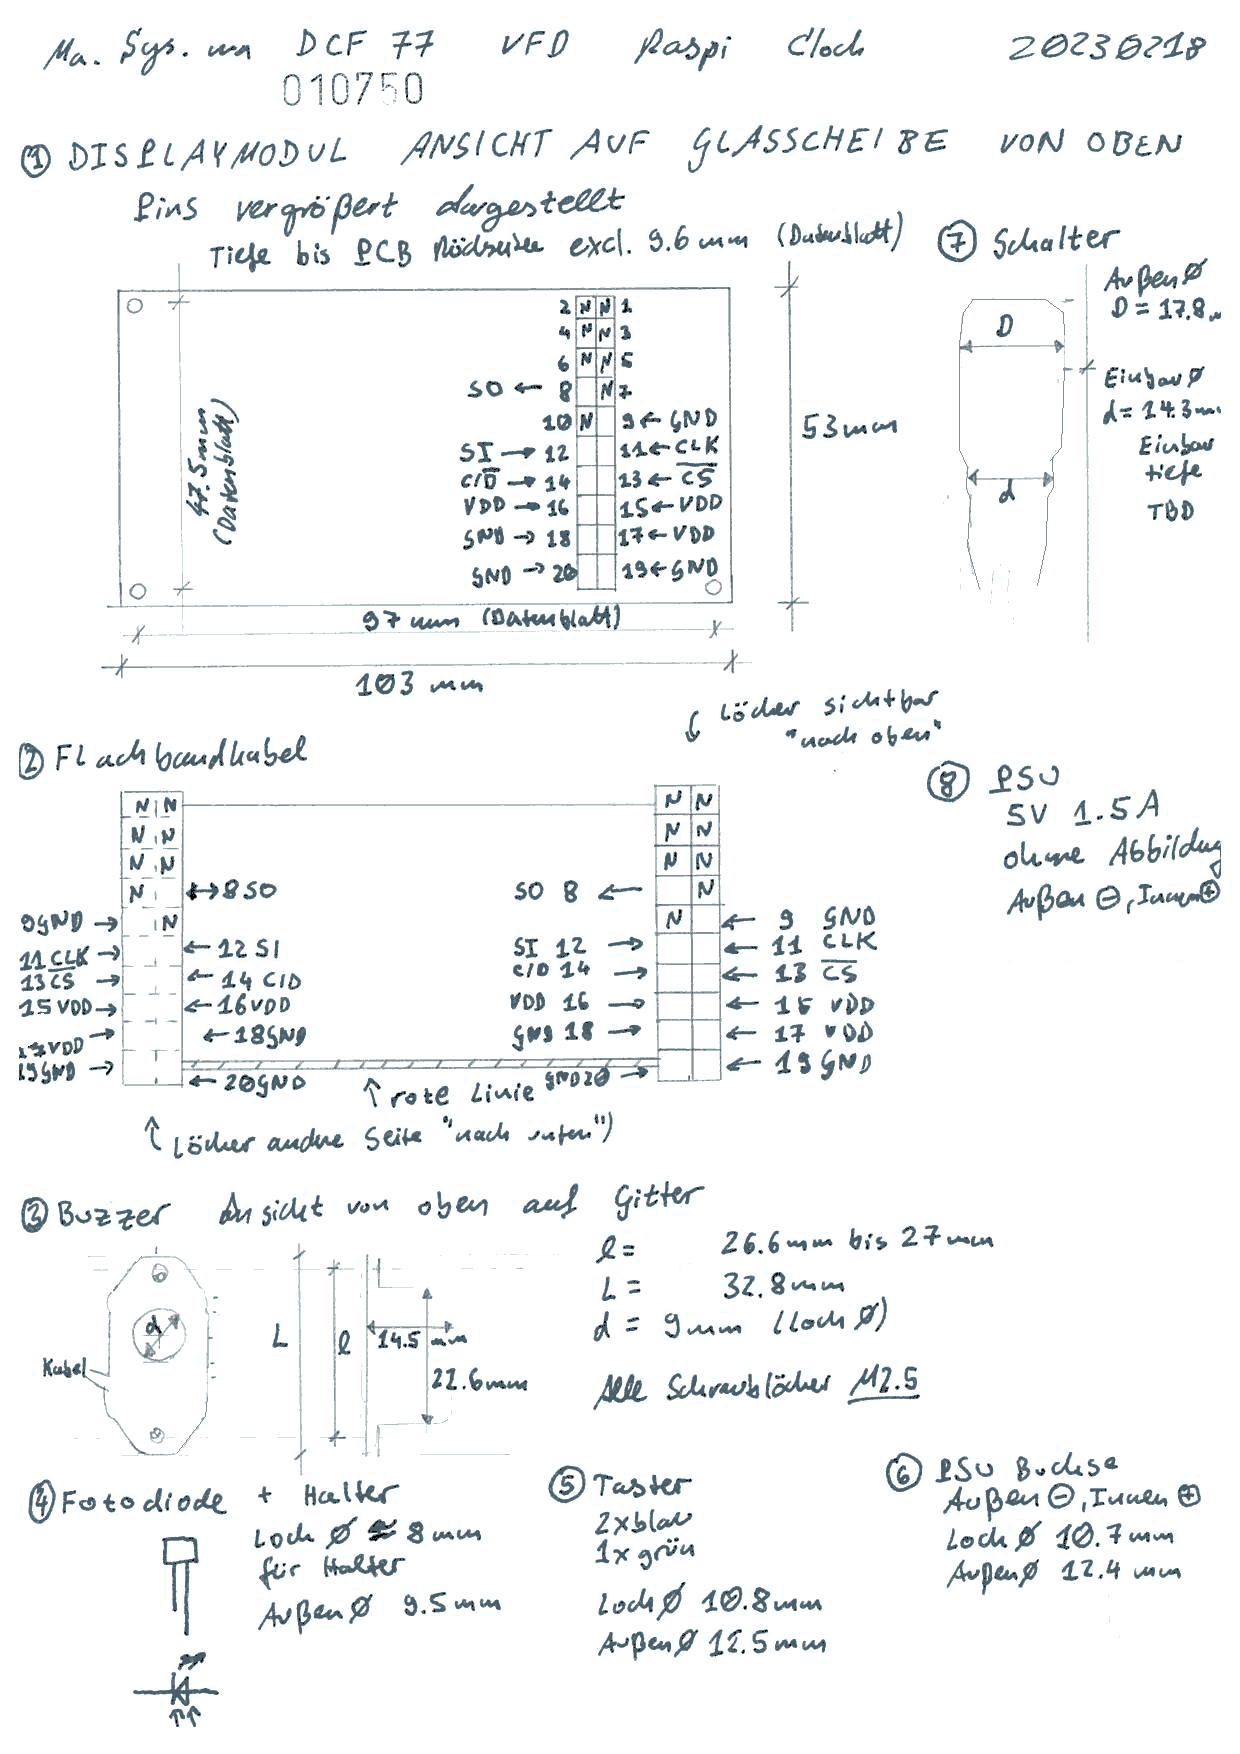 Ma. Sys. ma DCF 77 VFD Raspi Clock 20230218
010750
① DISPLAYMODUL ANSICHT AUF GLASSCHEIBE VON OBEN
Pins vergrößert dargestellt
Tiefe bis PCB Rückseite excl. 9.6mm (Datenblatt)
2 N N 1
4 N N 3
6 N N 5
SO ← 8 N 7
10 N 9 ← GND
SI → 12 11 ← CLK
C/D → 14 13 ← CS
VDD → 16 15 ← VDD
GND → 18 17 ← VDD
GND → 20 19 ← GND
47.5mm
(Datenblatt)
53mm
97 mm (Datenblatt)
103 mm
⑦ Schalter
Außen Ø
D = 17.8
D
Einbau Ø
d = 14.3mm
Einbau
tiefe
TBD
d
② Flachbandkabel
Löcher sichtbar
"nach oben"
N N
N N
N N
N
8 SO
9 GND → N
11 CLK → ← 12 SI
13 CS → ← 14 C/D
15 VDD → ← 16 VDD
17 VDD → ← 18 GND
19 GND → ← 20 GND
N N
N N
N N
SO 8 ← N
N ← 9 GND
SI 12 → ← 11 CLK
C/D 14 → ← 13 CS
VDD 16 → ← 15 VDD
GND 18 → ← 17 VDD
GND 20 → ← 19 GND
↑ rote Linie
↑ Löcher andere Seite "nach unten")
⑧ PSU
5V 1.5A
ohne Abbildung
Außen ⊖, Innen ⊕
③ Buzzer Ansicht von oben auf Gitter
d
Kabel
L
l
14.5 mm
22.6mm
l = 26.6mm bis 27mm
L = 32.8mm
d = 9mm (Loch Ø)
Alle Schraublöcher M2.5
④ Fotodiode + Halter
Loch Ø ≈ 8mm
für Halter
Außen Ø 9.5mm
⑤ Taster
2x blau
1x grün
Loch Ø 10.8mm
Außen Ø 12.5mm
⑥ PSU Buchse
Außen ⊖, Innen ⊕
Loch Ø 10.7mm
Außen Ø 12.4mm